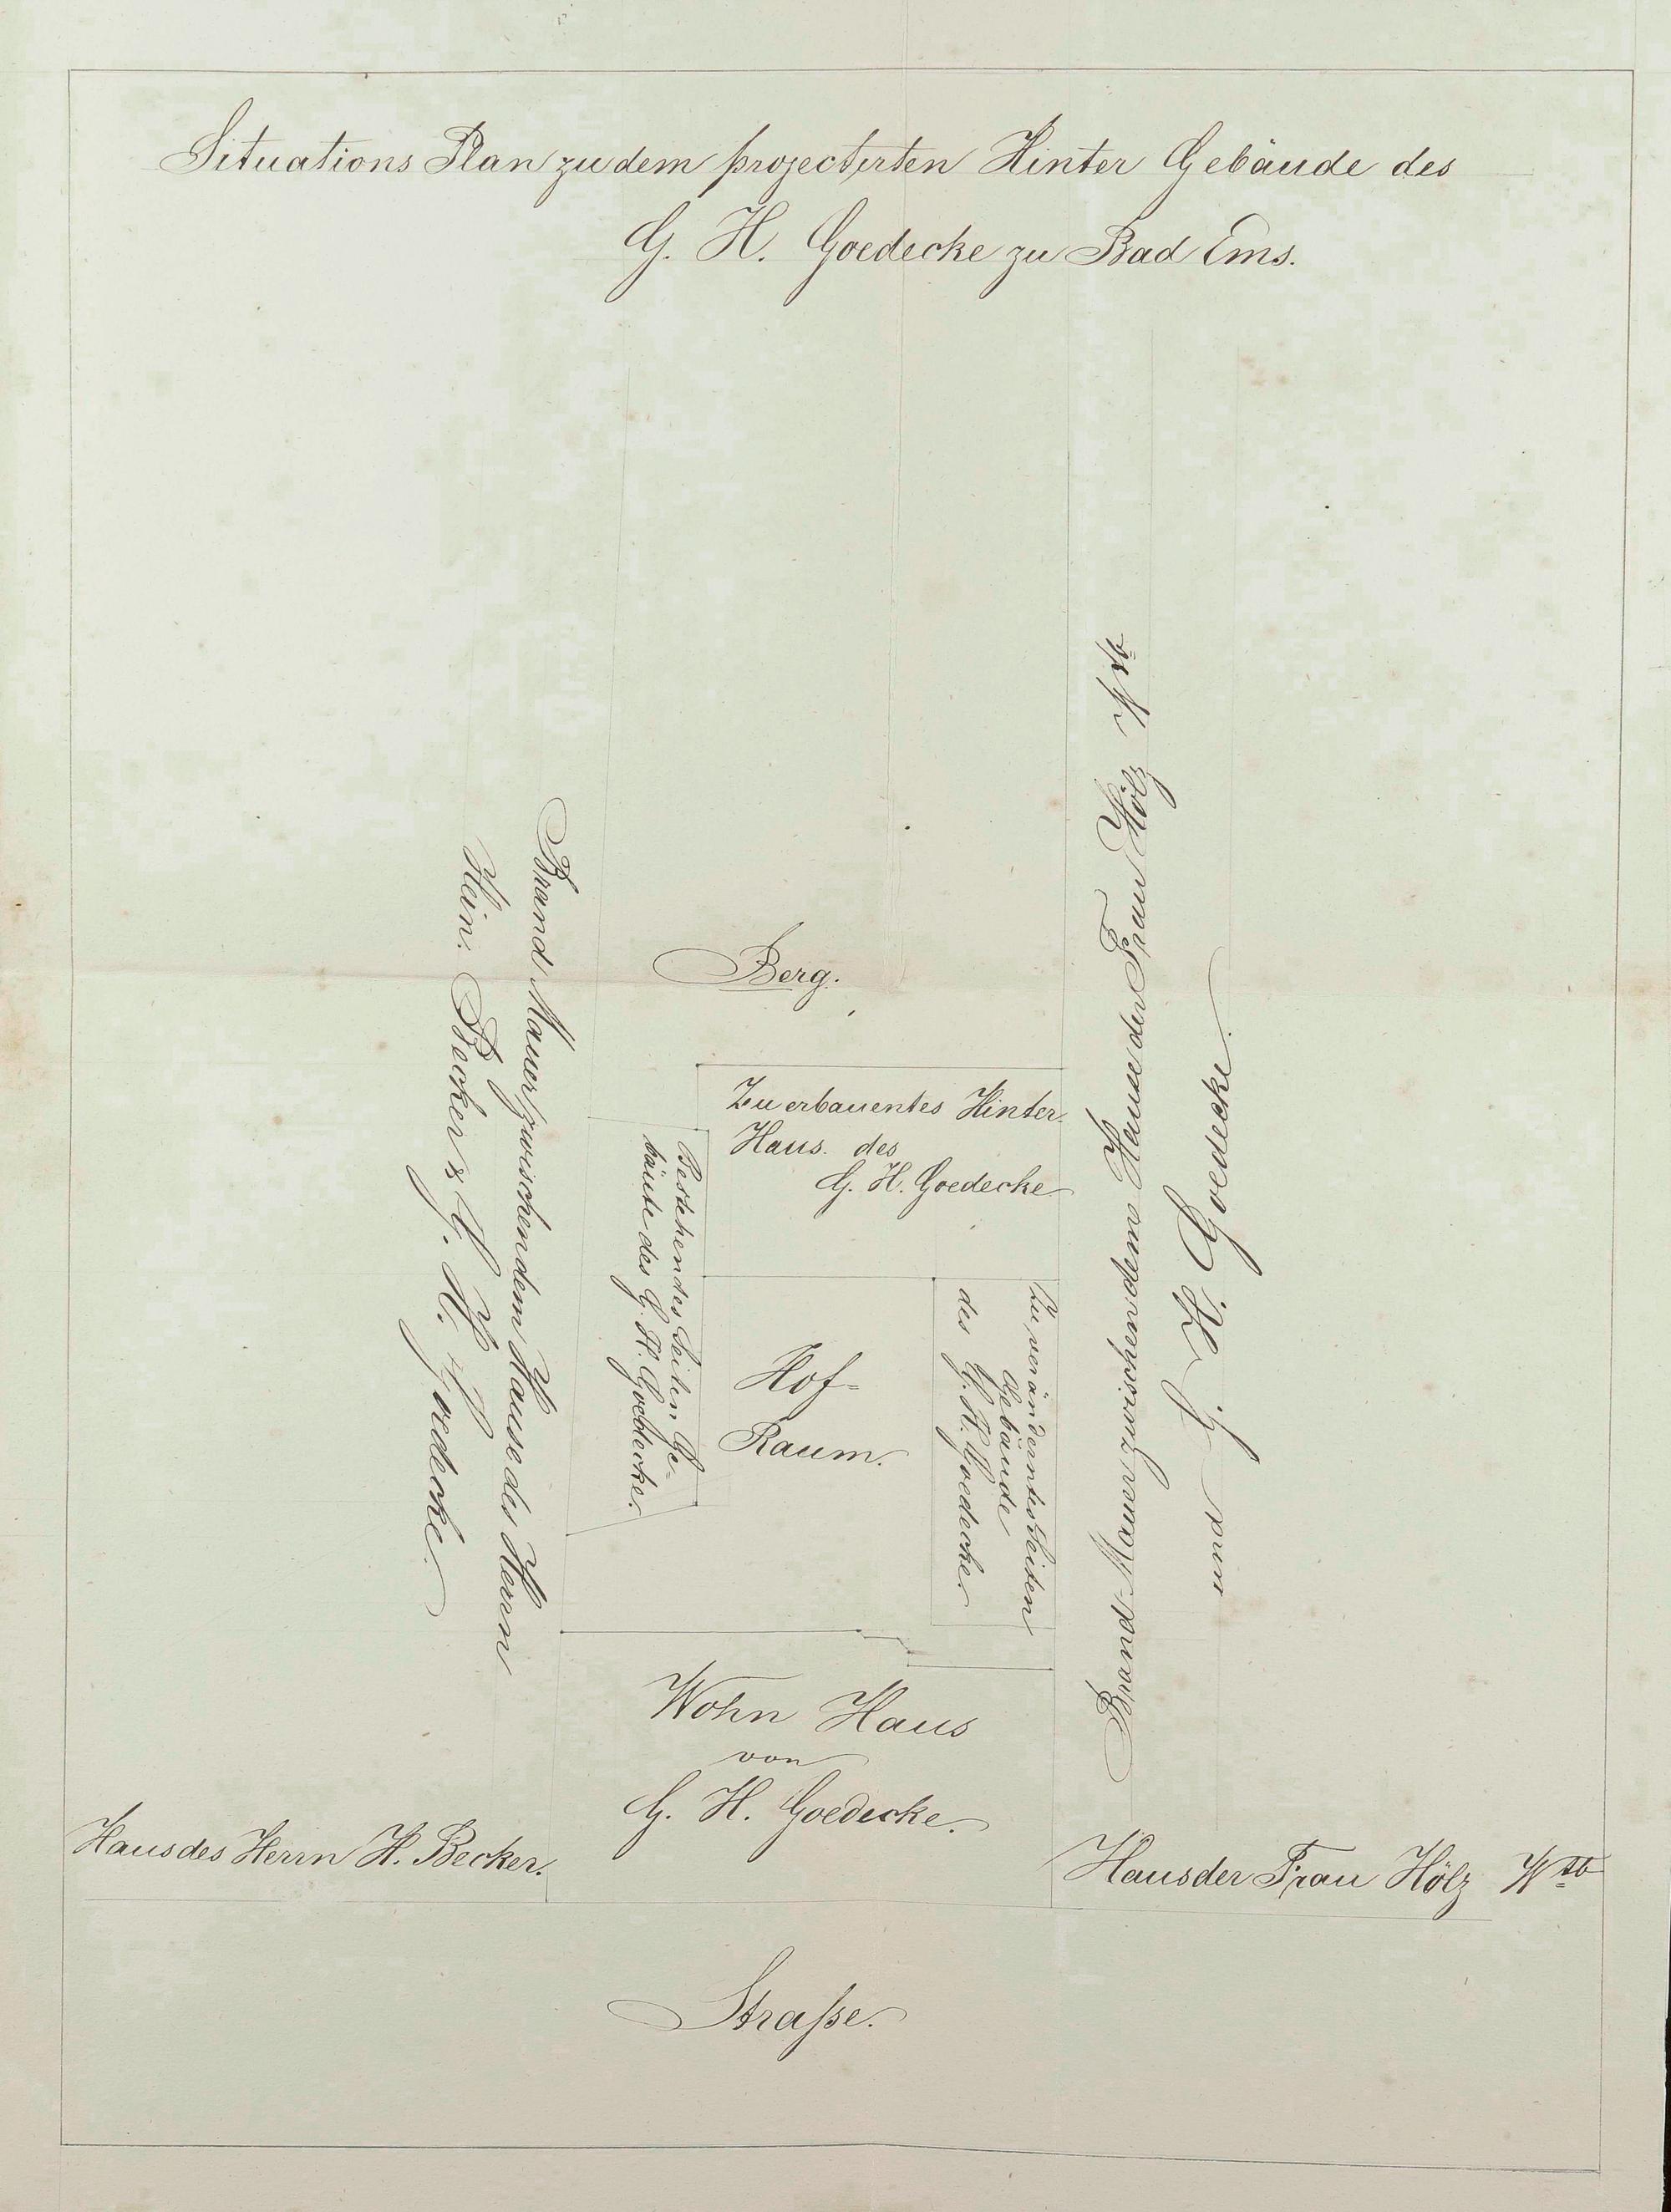 Situations Plan zu dem projectirten Hinter Gebäude des
G. H. Goedecke zu Bad Ems.
Berg.
Brand Mauer zwischen dem Hause des Herrn
Hein. Becker & G. H. Goedecke.
Zu erbauentes Hinter-
Haus des
G. H. Goedecke
Bestehendes Seiten Ge-
bäute des G. H. Goedecke.
Hof-
Raum.
Zu veränderntes Seiten
Gebäude
des G. H. Goedecke.
Brand-Mauer zwischen dem Hause der Frau Hölz Wtb
und G. H. Goedecke.
Wohn Haus
von
G. H. Goedecke.
Haus des Herrn H. Becker.
Haus der Frau Hölz Wtb
Straße.